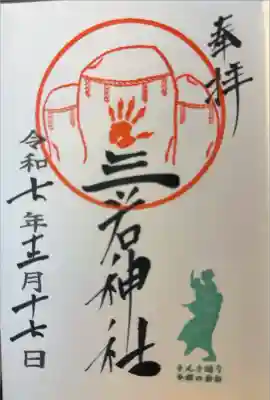 奉拝
三ツ石神社
令和七年十二月十七日
さんさ踊り